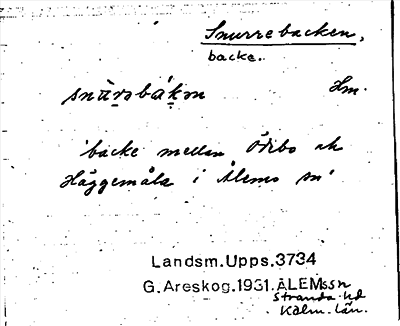 Snurrebacken,
backe.
snu̇rọbák̬ən Hm.
backe mellan Ödebo ok
Häggemåla i Ålems sn
Landsm.Upps.3734
G.Areskog.1931.ÅLEMssn
Stranda hd
Kalm. län.